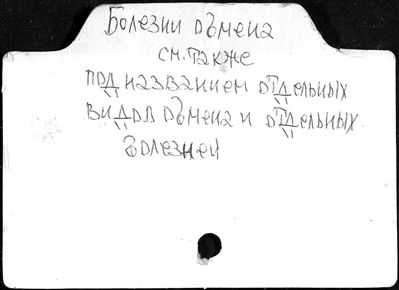 Болезни обмена
см. также
под названием отдельных
видов обмена и отдельных
болезней